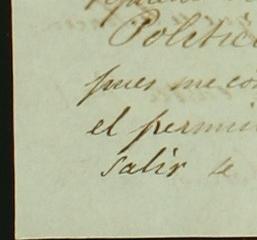 Politic
pues me co
el permi
salir se